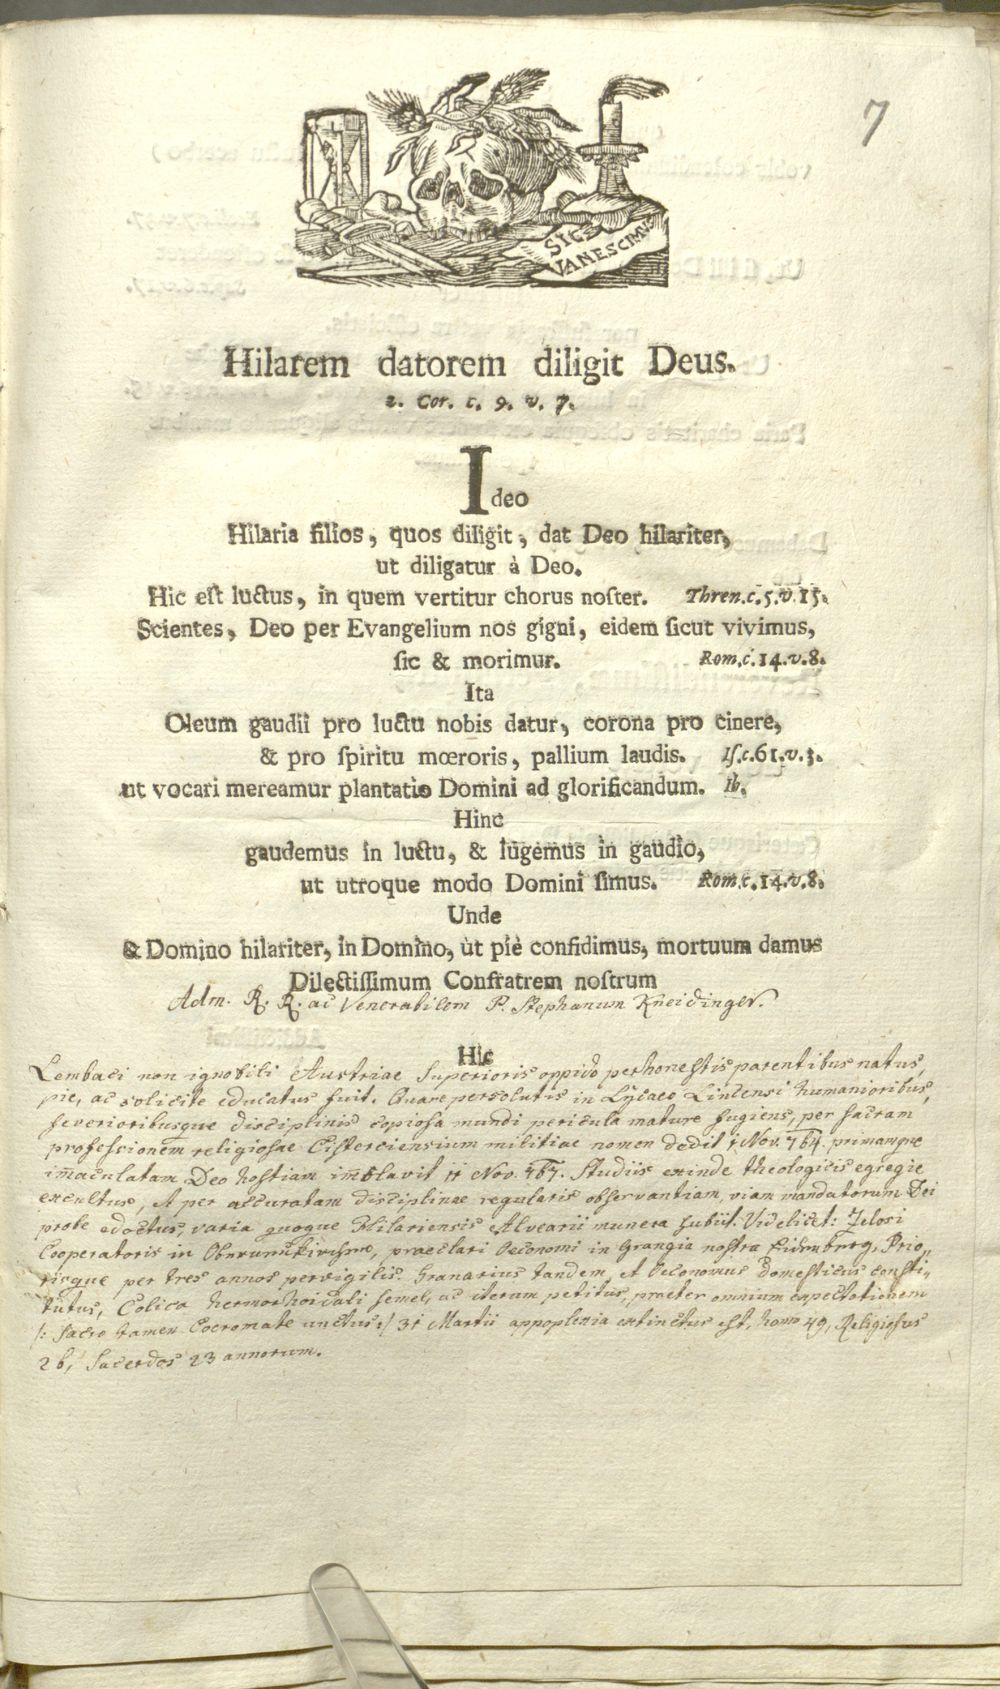 7
SIC
VANESCIMUS
Hilarem datorem diligit Deus.
2. Cor. c. 9. v. 7.
Ideo
Hilaria filios, quos diligit, dat Deo hilariter,
ut diligatur à Deo.
Hic est luctus, in quem vertitur chorus noster. Thren. c. 5. v. 15.
Scientes, Deo per Evangelium nos gigni, eidem sicut vivimus,
sic & morimur. Rom. c. 14. v. 8.
Ita
Oleum gaudii pro luctu nobis datur, corona pro cinere,
& pro spiritu mœroris, pallium laudis. Is. c. 61. v. 3.
ut vocari mereamur plantatio Domini ad glorificandum. Ib.
Hinc
gaudemus in luctu, & lugemus in gaudio,
ut utroque modo Domini simus. Rom. c. 14. v. 8.
Unde
& Domino hilariter, in Domino, ut piè confidimus, mortuum damus
Dilectissimum Confratrem nostrum
Adm. R. R. ac Venerabilem P. Stephanum Kneidinger.
Hic
Lembaci non ignobili Austriae Superioris oppido perhonestis parentibus natus,
pie, ac solicite educatus fuit. Quare persolutis in Lÿcaeo Lincensi humanioribus,
severioribusque disciplinis copiosa mundi pericula mature fugiens, per sacram
professionem religiosae Cisterciensium militiae nomen dedit 1 Nov. 764. primamque
imaculatam Deo hostiam imolavit 11 Nov. 767. Studiis exinde theologicis egregie
excultus, et per accuratam disciplinae regularis observantiam, viam mandatorum Dei
probe edoctus, varia quoque Hilariensis Alvearii munera subiit. Videlicet: Zelosi
Cooperatoris in , praeclari Oeconomi in Grangia nostra Eidenberg, Prio„
risque per tres annos pervigilis. Granarius tandem et Oeconomus domesticus consti„
tutus, Colica hemorhoidali semel, ac iterum petitus, praeter omnium expectationem
/: sacro tamen Cocromate unctus :/ 31 Martii appoplexia extinctus est, homo 49, Religiosus
26, Sacerdos 23 annorum.